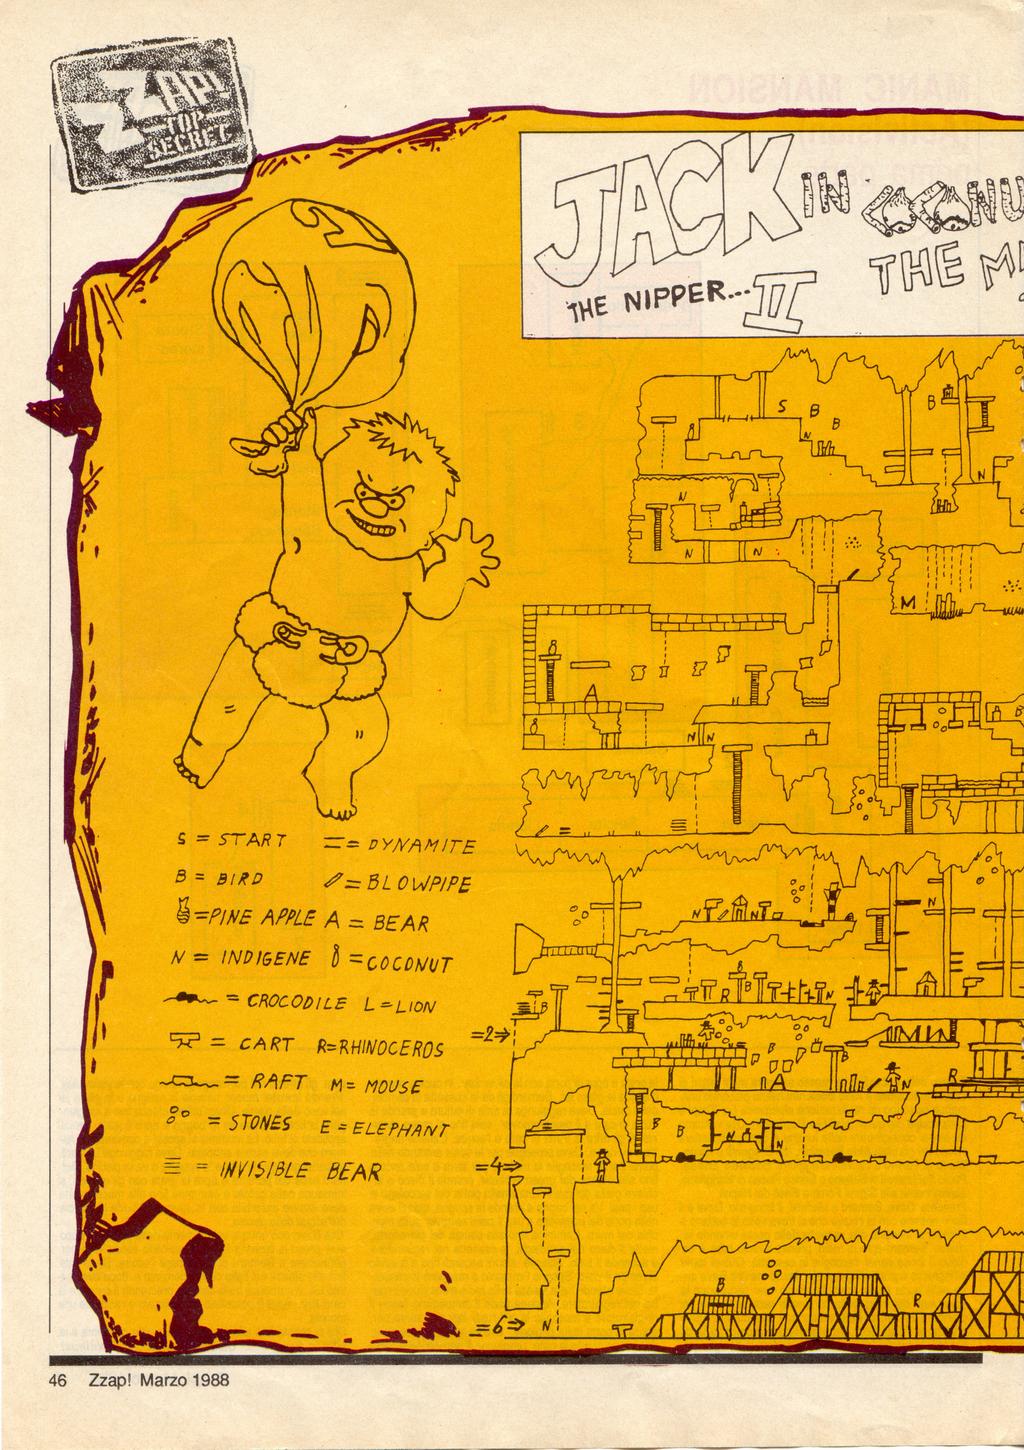 ZZAP!
TOP
SECRET
JACK IN COCONU
THE NIPPER... II THE M
S = START = DYNAMITE
B = BIRD = BLOWPIPE
=PINE APPLE A = BEAR
N = INDIGENE =COCONUT
= CROCODILE L=LION
= CART R=RHINOCEROS
= RAFT M= MOUSE
= STONES E=ELEPHANT
= INVISIBLE BEAR
S B B B
N N
N
N N
M
A
N N
N N
B
R B N
B
=2⇒
B
A N R
B B
N N
=4⇒
B
R
=6⇒ N
46 Zzap! Marzo 1988